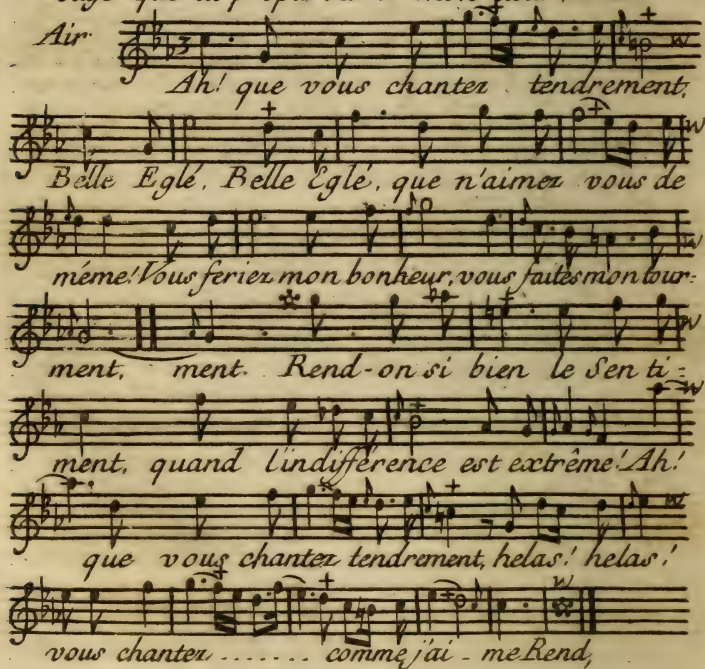 Air
Ah! que vous chantez tendrement,
Belle Eglé, Belle Eglé, que n'aimez vous de
même! Vous feriez mon bonheur, vous faites mon tour-
ment, ment. Rend-on si bien le Senti-
ment, quand l'indifférence est extrême! Ah!
que vous chantez tendrement, helas! helas!
vous chantez....... comme j'ai-me Rend,